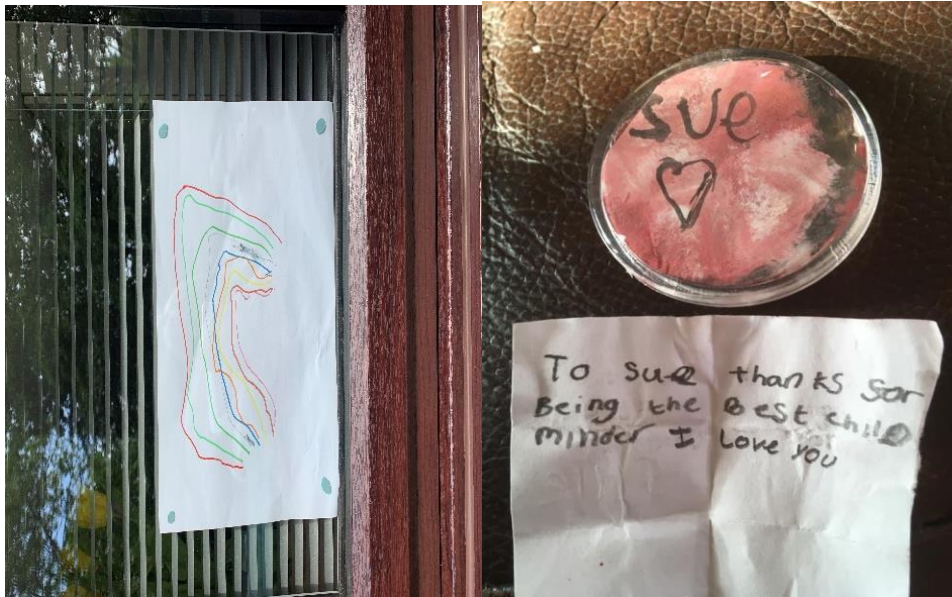 sue
To sue thanks for
Being the Best child
minder I Love you